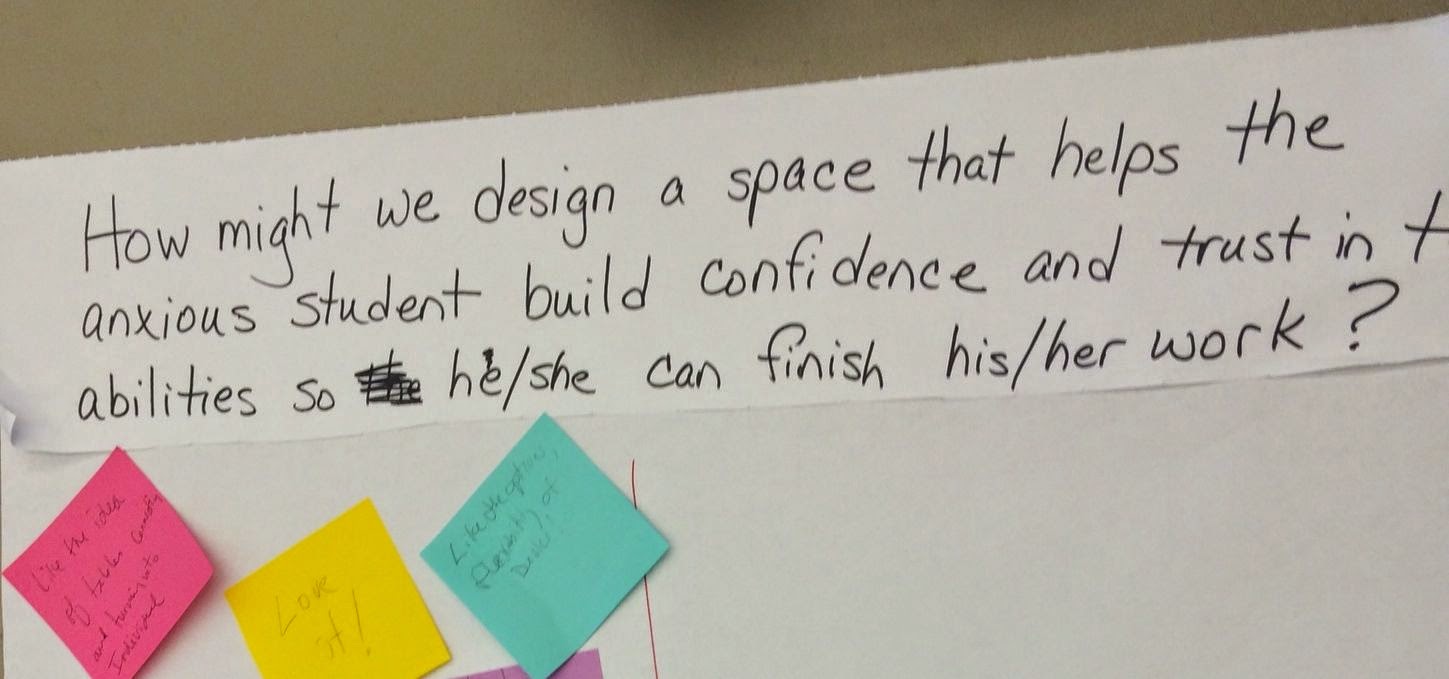 How might we design a space that helps the
anxious student build confidence and trust in t
abilities so he/she can finish his/her work?
Like the idea
of tables connecting
and turning into
Individual
Love
it!
Like the option,
flexibility of
Desks!